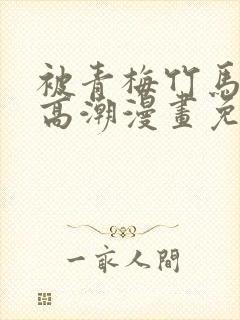 被青梅竹馬
高潮漫畫免
一家人間